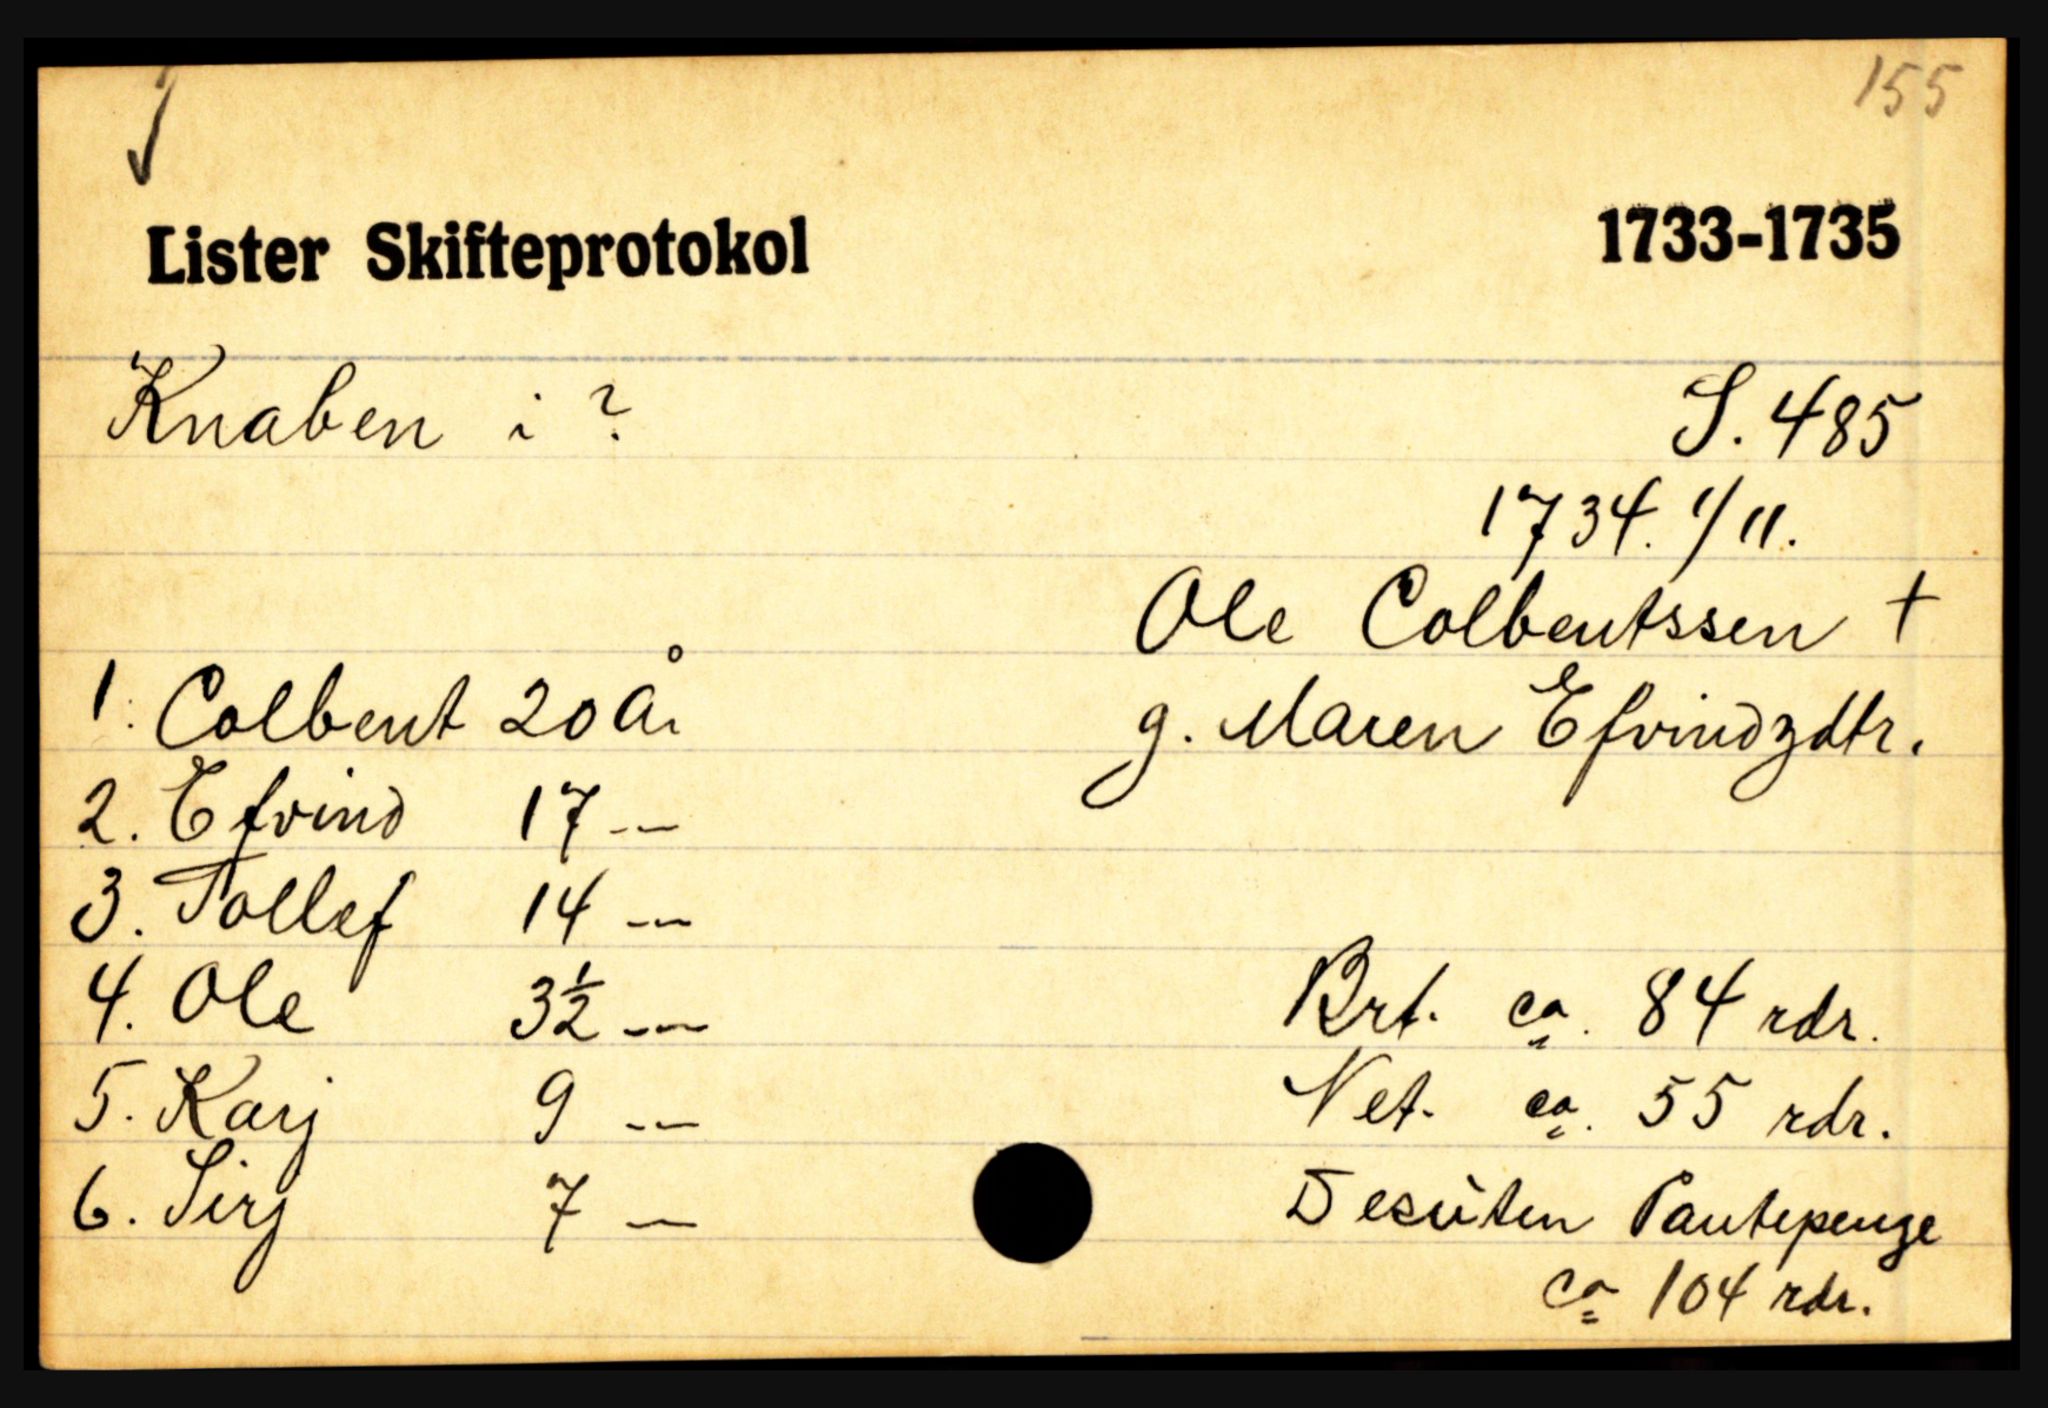 155
Lister Skifteprotokol 1733-1735
Knaben i ? S. 485
1734. 1/11.
Ole Colbentssen +
1. Colbent 20 År g. Maren Efvindzdtr.
2. Efvind 17 —
3. Tollef 14 —
4. Ole 3½ — Brt. ca. 84 rdr.
5. Karj 9 — Net. ca. 55 rdr.
6. Sirj 7 — Desuten Pantepenge
ca 104 rdr.